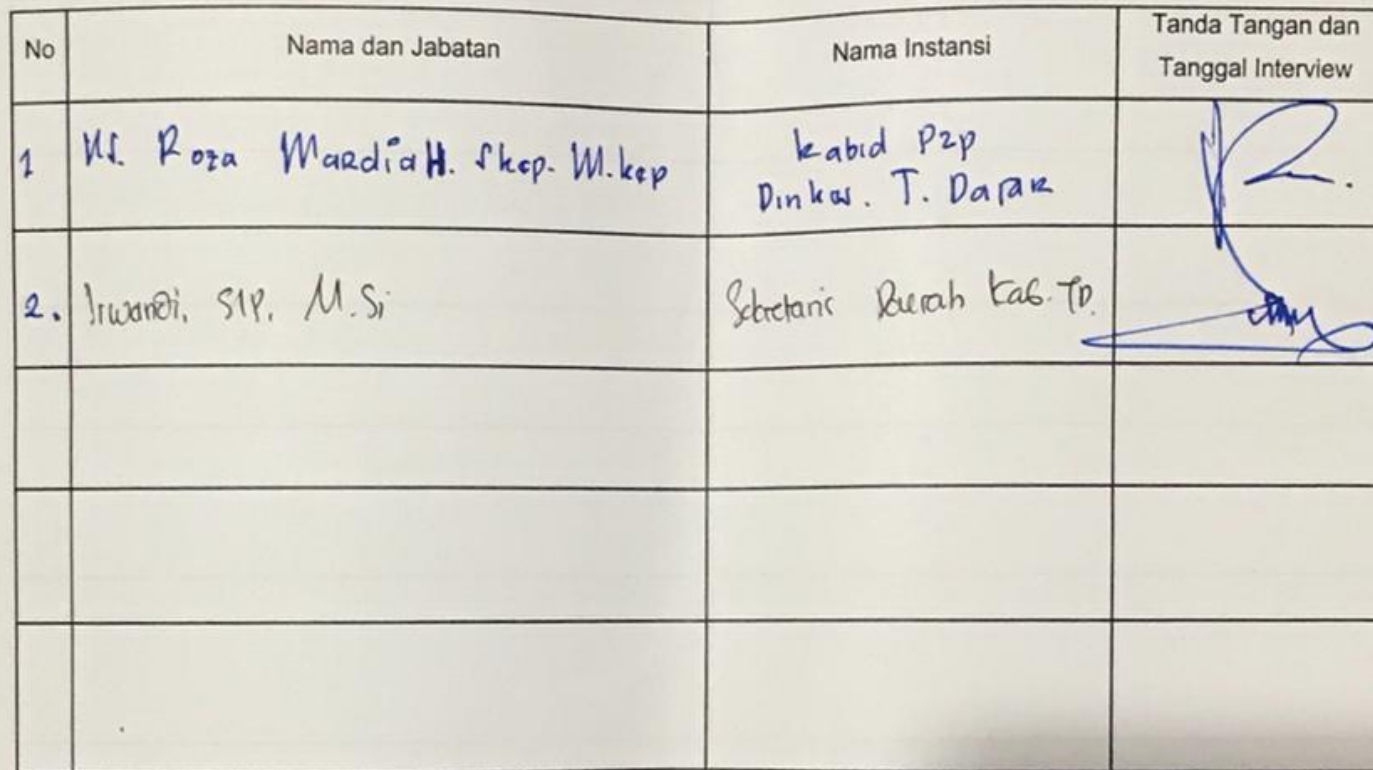 No Nama dan Jabatan Nama Instansi Tanda Tangan dan
Tanggal Interview
1 Ns. Roza MardiaH. Skep. M.kep kabid P2p
Dinkes. T. Datar
2. Irwandi, SIP, M.Si Sekretaris Daerah Kab. TD.